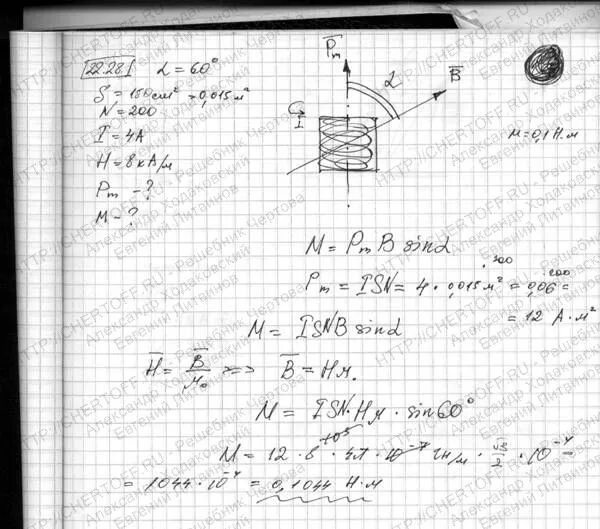 22.28
α = 60°
S = 150 см² = 0,015 м²
N = 200
I = 4А
H = 8 кА/м
Pm - ?
M - ?
P̄m
α
B̄
I
M = 0,1 Н·м
M = Pm B sinα
Pm = ISN = 4 · 0,015 м² · 200 = 0,06 · 200 =
= 12 А·м²
M = ISNB sinα
H̄ = B̄/μ₀ => B̄ = Hμ.
M = ISN·Hμ · sin60°
M = 12 · 8 · 10³ · 4π · 10⁻⁷ Гн/м · √3/2 · 10⁻⁴ =
= 1044·10⁻⁴ = 0,1044 Н·м
HTTP://CHERTOFF.RU - Решебник Чертова
Александр Ходаковский
Евгений Литвинов